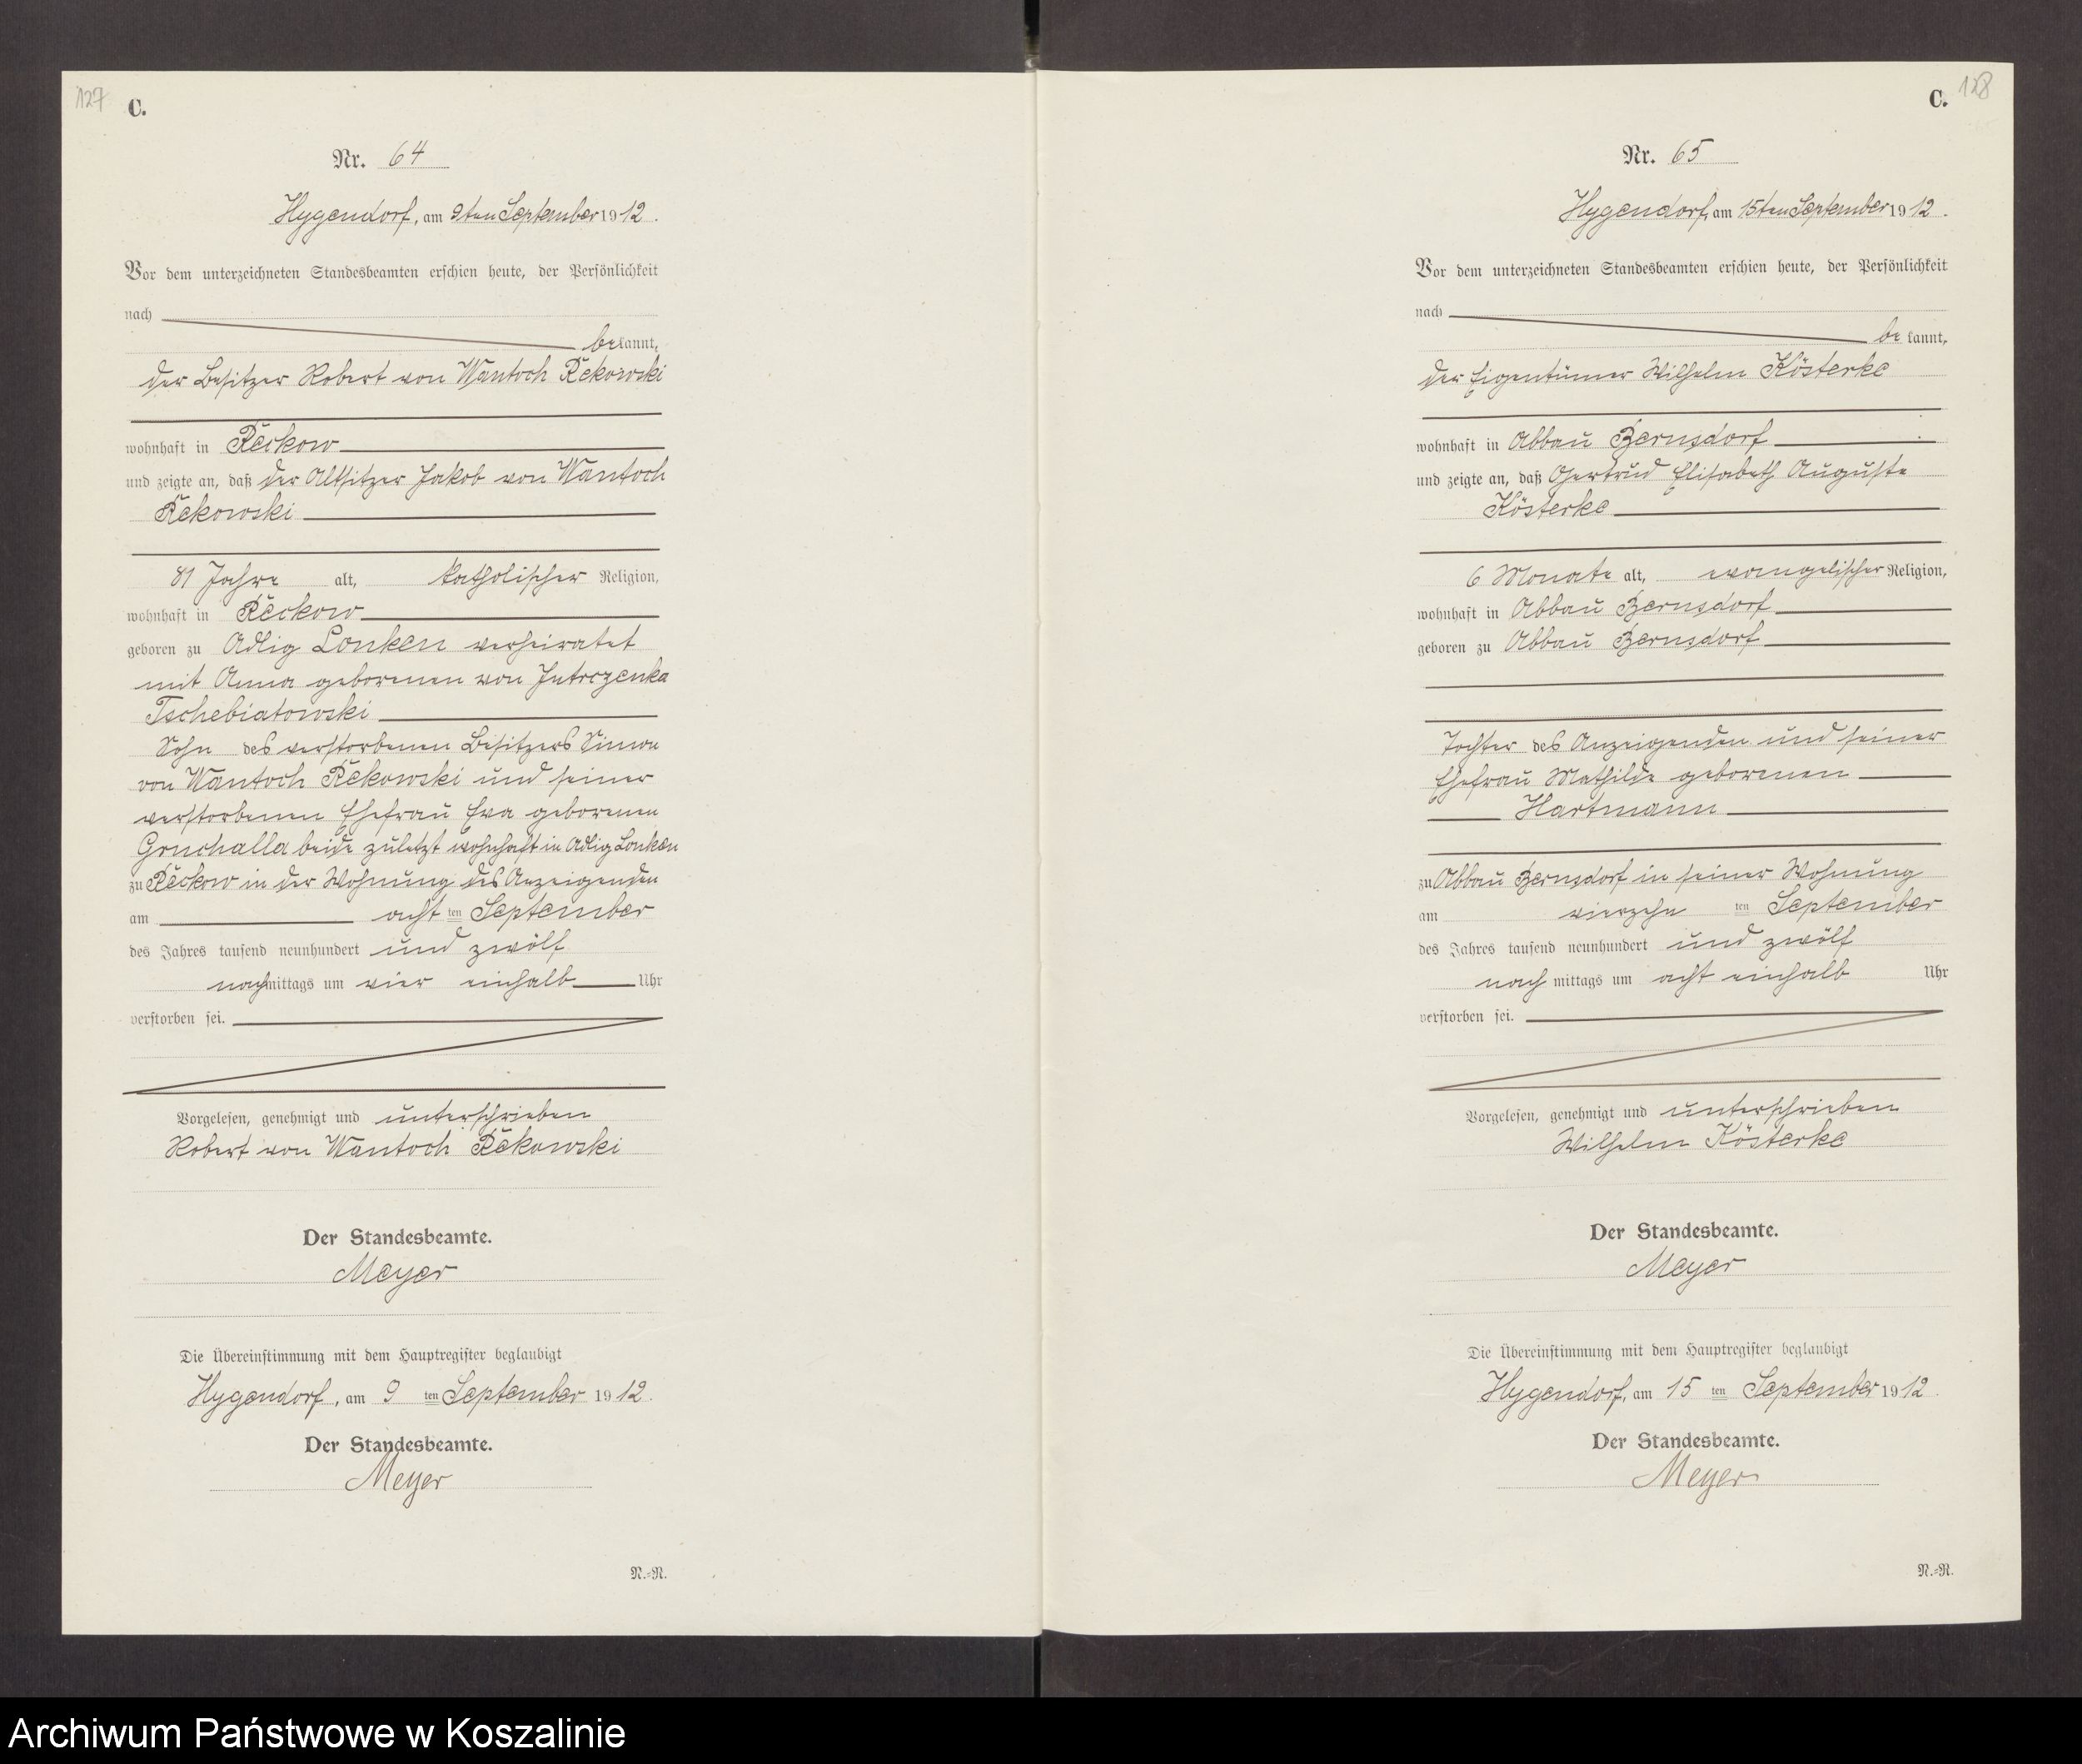 127
C.
Nr. 64
Hygendorf, am 9ten September 1912.
Vor dem unterzeichneten Standesbeamten erschien heute, der Persönlichkeit
nach
bekannt,
der Besitzer Robert von Wantoch Rekowski
wohnhaft in Reckow
und zeigte an, daß der Altsitzer Jakob von Wantoch
Rekowski
81 Jahre alt, katholischer Religion,
wohnhaft in Reckow
geboren zu Adlig Lonken verheiratet
mit Anna geborenen von Jutrczenka
Tschebiatowski
Sohn des verstorbenen Besitzers Simon
von Wantoch Rekowski und seiner
verstorbenen Ehefrau Eva geborenen
Gruchalla beide zuletzt wohnhaft in Adlig Lonken
zu Reckow in der Wohnung des Anzeigenden
am acht ten September
des Jahres tausend neunhundert und zwölf
nachmittags um vier einhalb Uhr
verstorben sei.
Vorgelesen, genehmigt und unterschrieben
Robert von Wantoch Rekowski
Der Standesbeamte.
Meyer
Die Übereinstimmung mit dem Hauptregister beglaubigt
Hygendorf, am 9 ten September 1912.
Der Standesbeamte.
Meyer
N.=N.
128
C.
Nr. 65
Hygendorf, am 15ten September 1912.
Vor dem unterzeichneten Standesbeamten erschien heute, der Persönlichkeit
nach
bekannt,
der Eigentümer Wilhelm Kösterke
wohnhaft in Abbau Bernsdorf
und zeigte an, daß Gertrud Elisabeth Auguste
Kösterke
6 Monate alt, evangelischer Religion,
wohnhaft in Abbau Bernsdorf
geboren zu Abbau Bernsdorf
Tochter des Anzeigenden und seiner
Ehefrau Mathilde geborenen
Hartmann
zu Abbau Bernsdorf in seiner Wohnung
am vierzehn ten September
des Jahres tausend neunhundert und zwölf
nachmittags um acht einhalb Uhr
verstorben sei.
Vorgelesen, genehmigt und unterschrieben
Wilhelm Kösterke
Der Standesbeamte.
Meyer
Die Übereinstimmung mit dem Hauptregister beglaubigt
Hygendorf, am 15 ten September 1912.
Der Standesbeamte.
Meyer
N.=N.
Archiwum Państwowe w Koszalinie